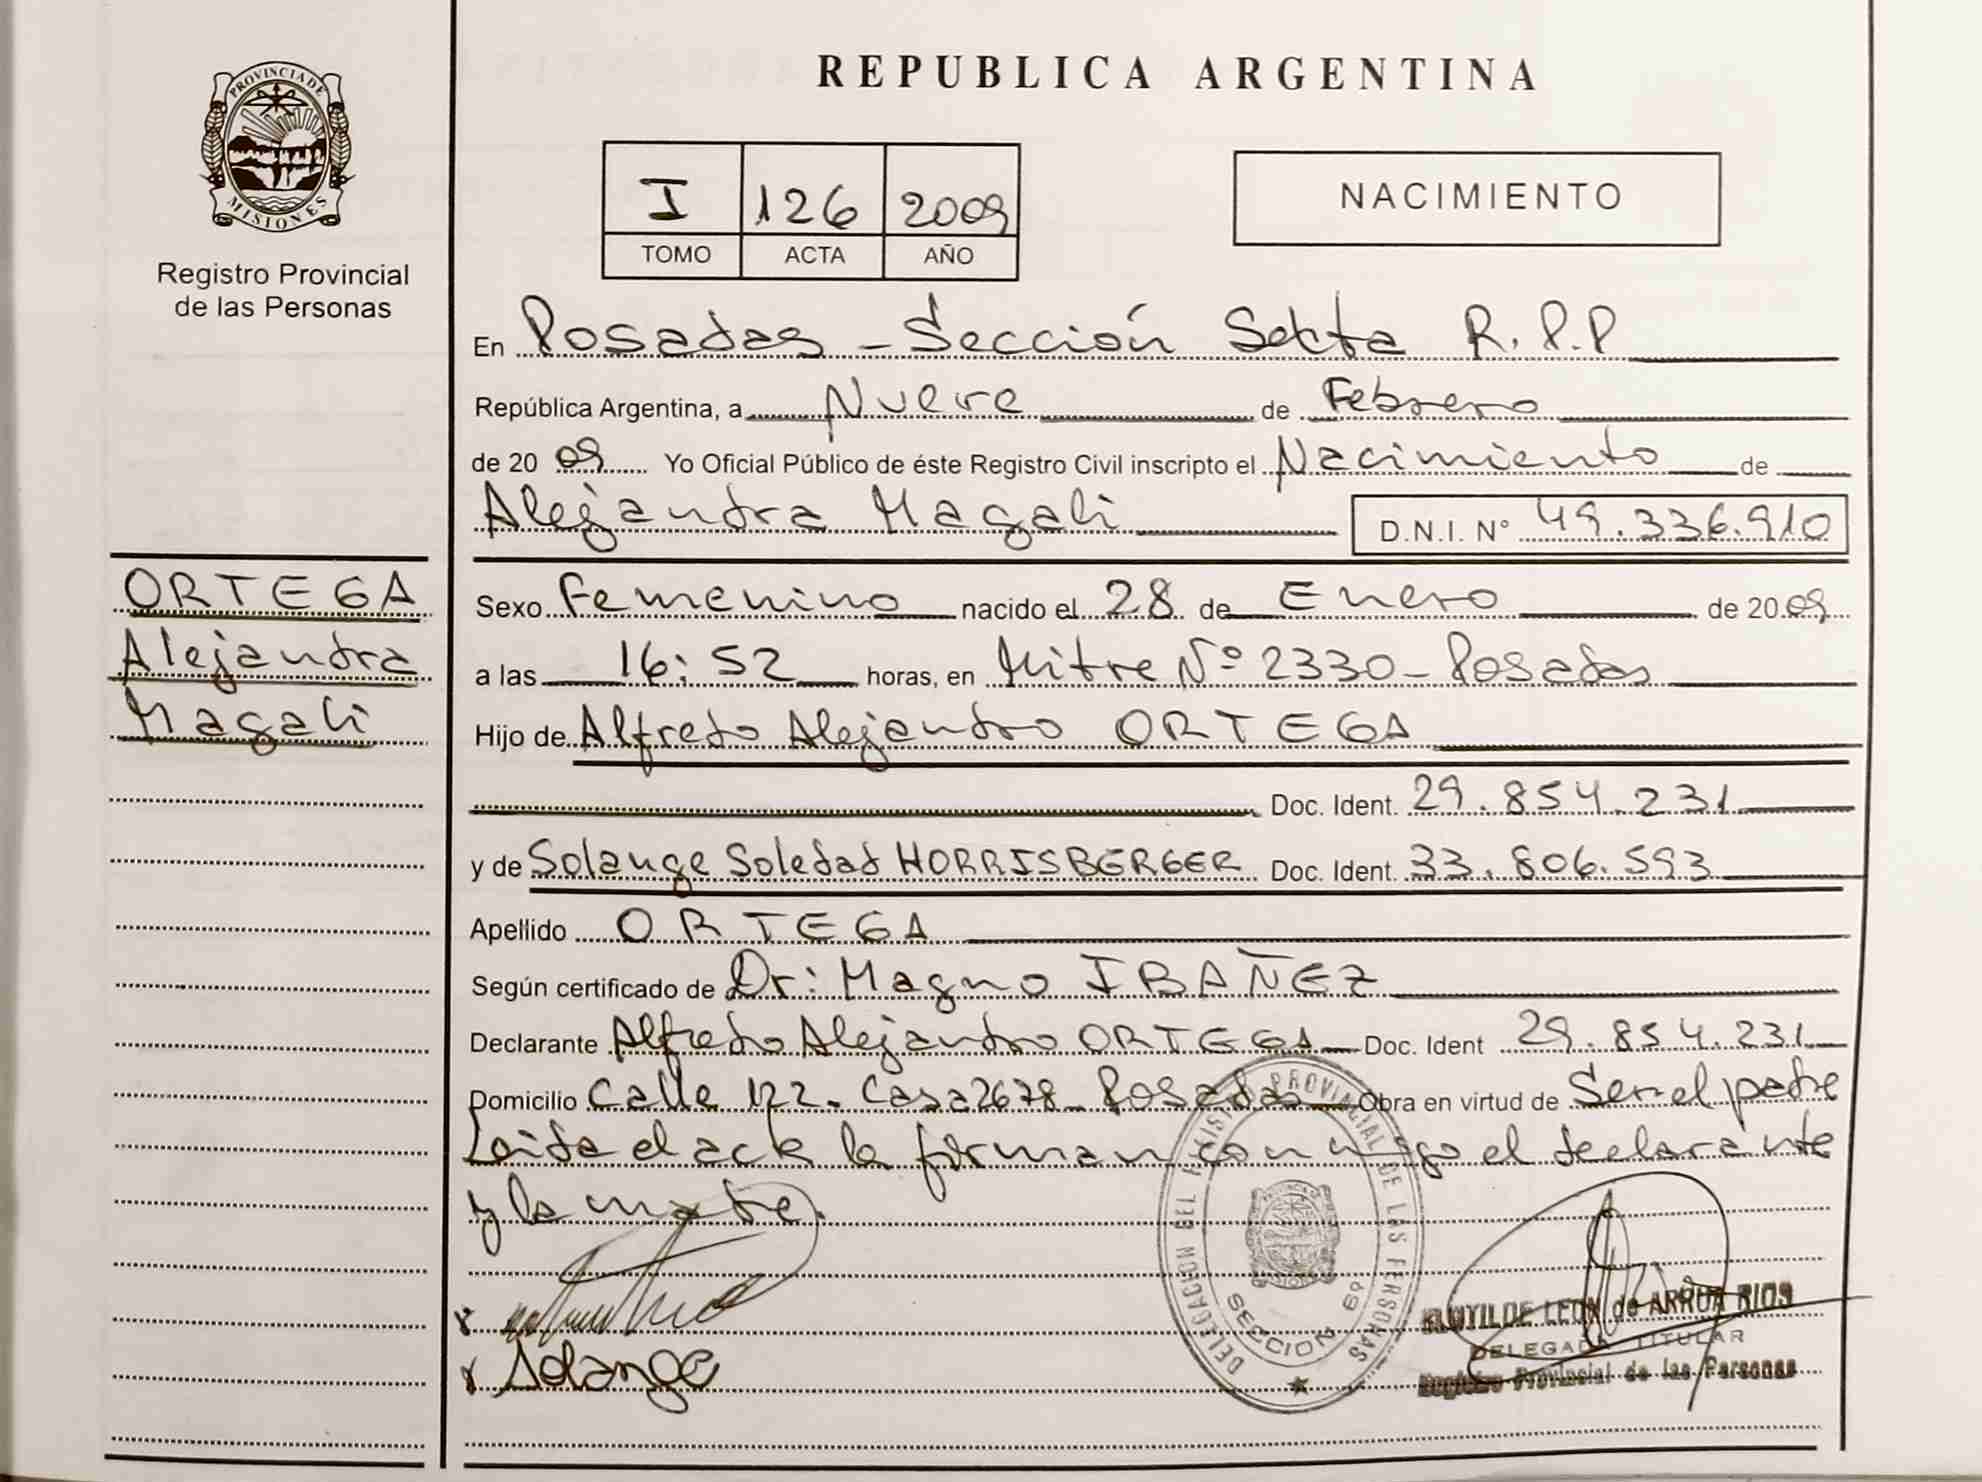 PROVINCIA DE
MISIONES
Registro Provincial
de las Personas
REPUBLICA ARGENTINA
I 126 2009
TOMO ACTA AÑO
NACIMIENTO
En Posadas - Sección Sexta R.P.P
República Argentina, a Nueve de Febrero
de 20 09 Yo Oficial Público de éste Registro Civil inscripto el Nacimiento de
Alejandra Magali D.N.I. Nº 49.336.910
ORTEGA
Alejandra
Magali
Sexo Femenino nacido el 28 de Enero de 20 09
a las 16:52 horas, en Mitre Nº 2330 - Posadas
Hijo de Alfredo Alejandro ORTEGA
Doc. Ident. 29.854.231
y de Solange Soledad HORRISBERGER Doc. Ident. 33.806.593
Apellido ORTEGA
Según certificado de Dr: Magno IBAÑEZ
Declarante Alfredo Alejandro ORTEGA Doc. Ident 29.854.231
Domicilio Calle 122 - Casa 2678 - Posadas Obra en virtud de Ser el padre
Leida el acta la firman conmigo el declarante
y la madre.
DELEGACION DEL REGISTRO PROVINCIAL DE LAS PERSONAS
SECCION 6º
x
x Solange
CLOTILDE LEON de ARRUA RIOS
DELEGADA TITULAR
Registro Provincial de las Personas